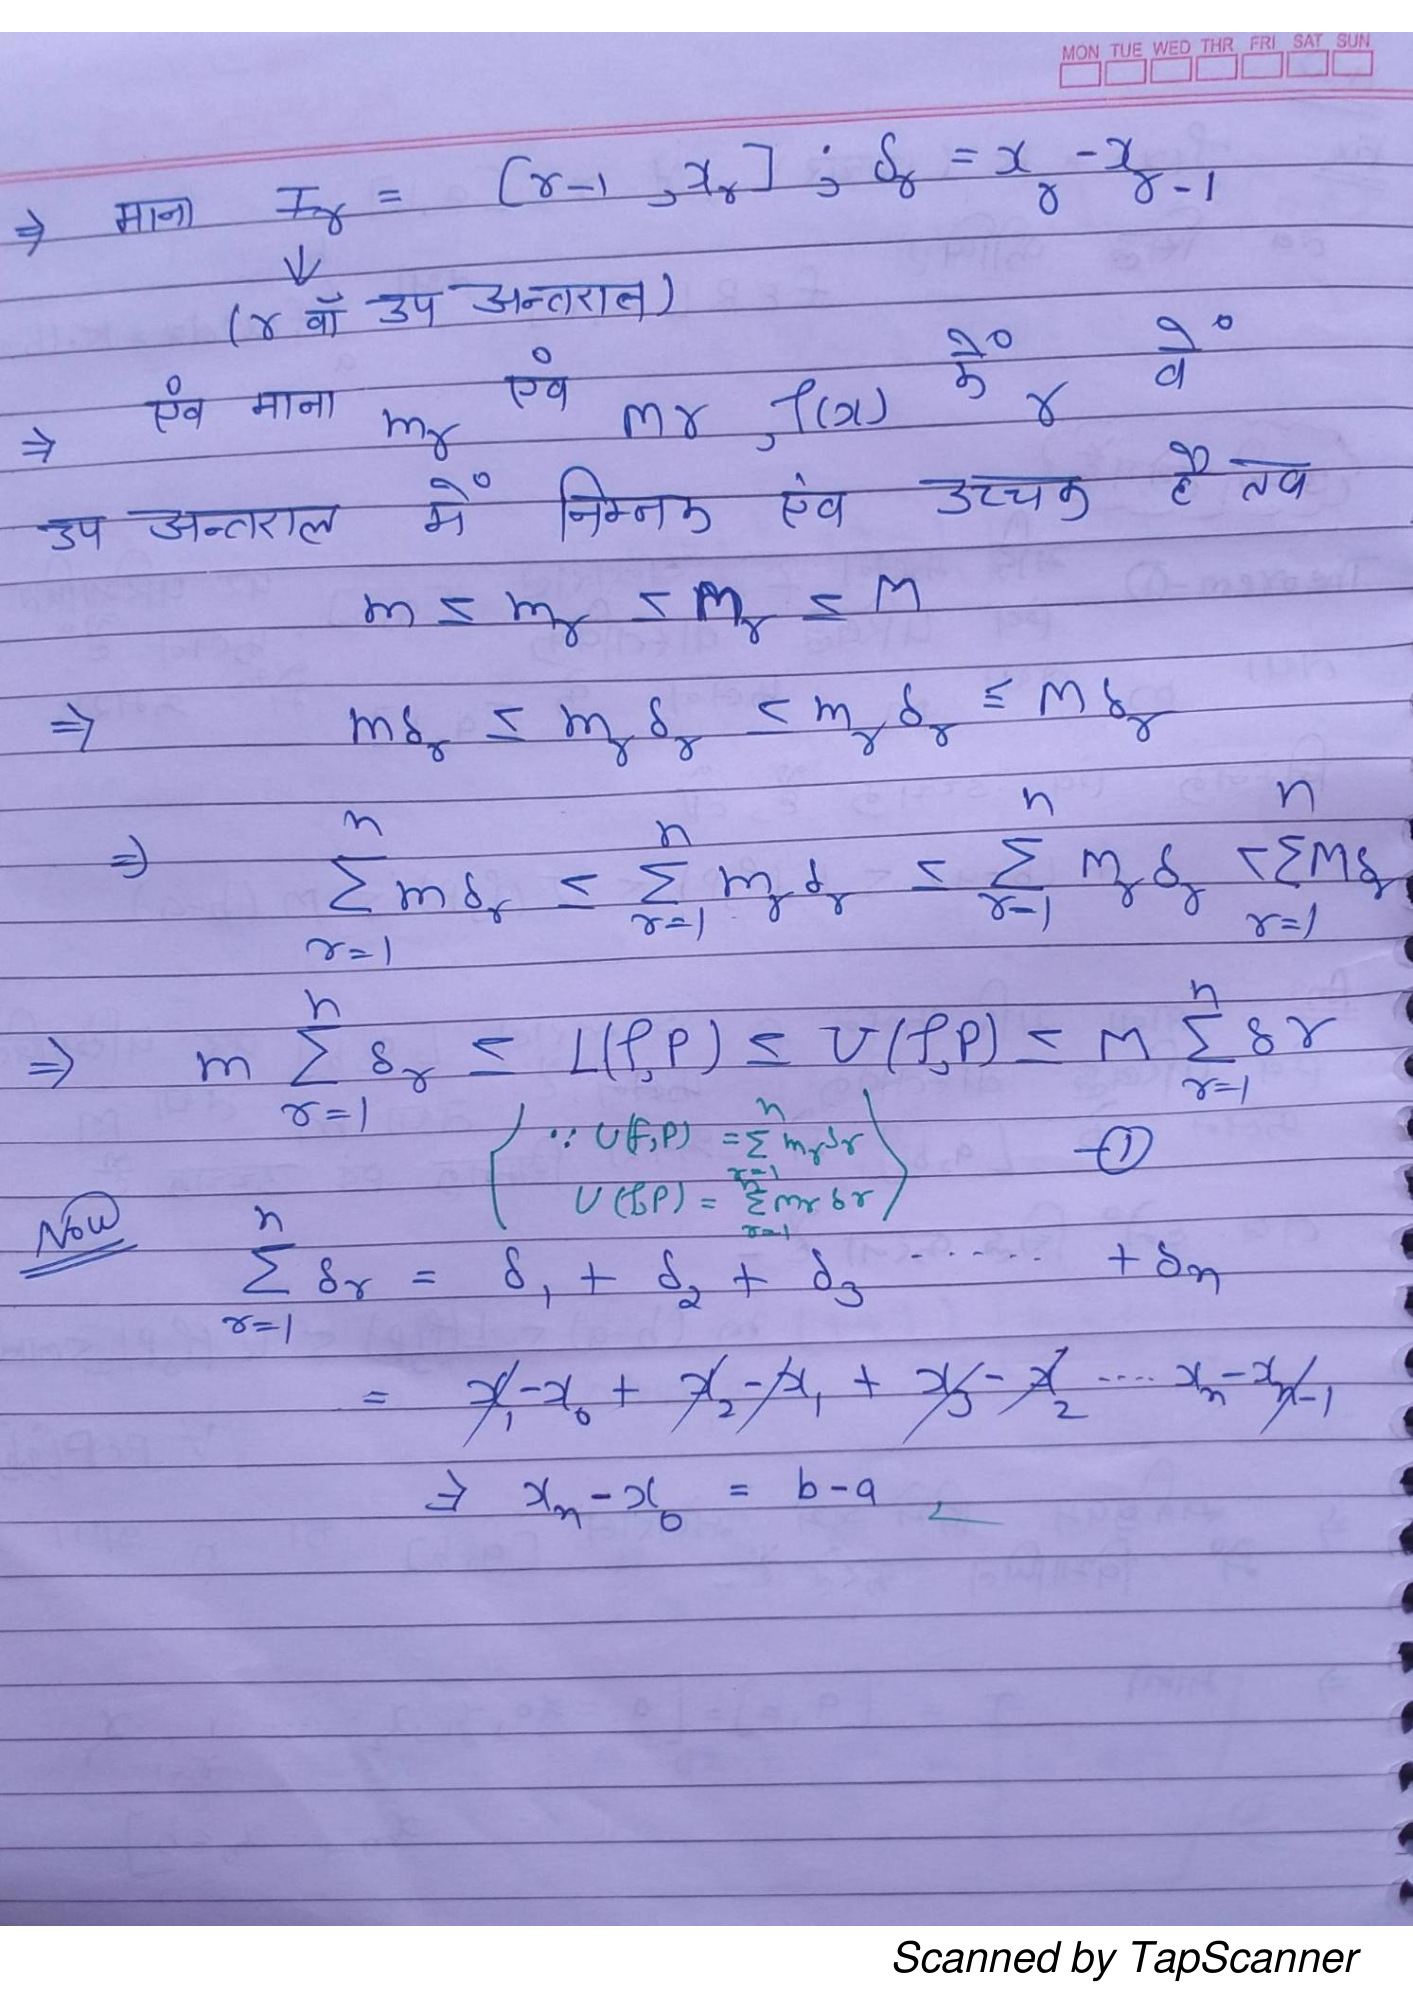 MON TUE WED THR FRI SAT SUN
⇒ माना I_r = [r-1, x_r] ; δ_r = x_r - x_{r-1}
↓
(r वाँ उप अन्तराल)
⇒ एंव माना m_r एंव mr, f(x) के r वे
उप अन्तराल में निम्नक एंव उच्चक है तब
m ≤ m_r ≤ M_r ≤ M
⇒ mδ_r ≤ m_r δ_r ≤ m_r δ_r ≤ M δ_r
⇒ \sum_{r=1}^{n} m δ_r ≤ \sum_{r=1}^{n} m_r δ_r ≤ \sum_{r-1}^{n} m_r δ_r < \sum_{r=1}^{n} M δ_r
⇒ m \sum_{r=1}^{n} δ_r ≤ L(f,P) ≤ U(f,P) ≤ M \sum_{r=1}^{n} δr
(∵ U(f,P) = \sum_{r=1}^{n} m_r δr
-①
U(f,P) = \sum_{r=1}^{n} mr δr)
Now \sum_{r=1}^{n} δr = δ_1 + δ_2 + δ_3 ....... + δ_n
= x_1 - x_0 + x_2 - x_1 + x_3 - x_2 .... x_n - x_{n-1}
⇒ x_n - x_0 = b-a
Scanned by TapScanner